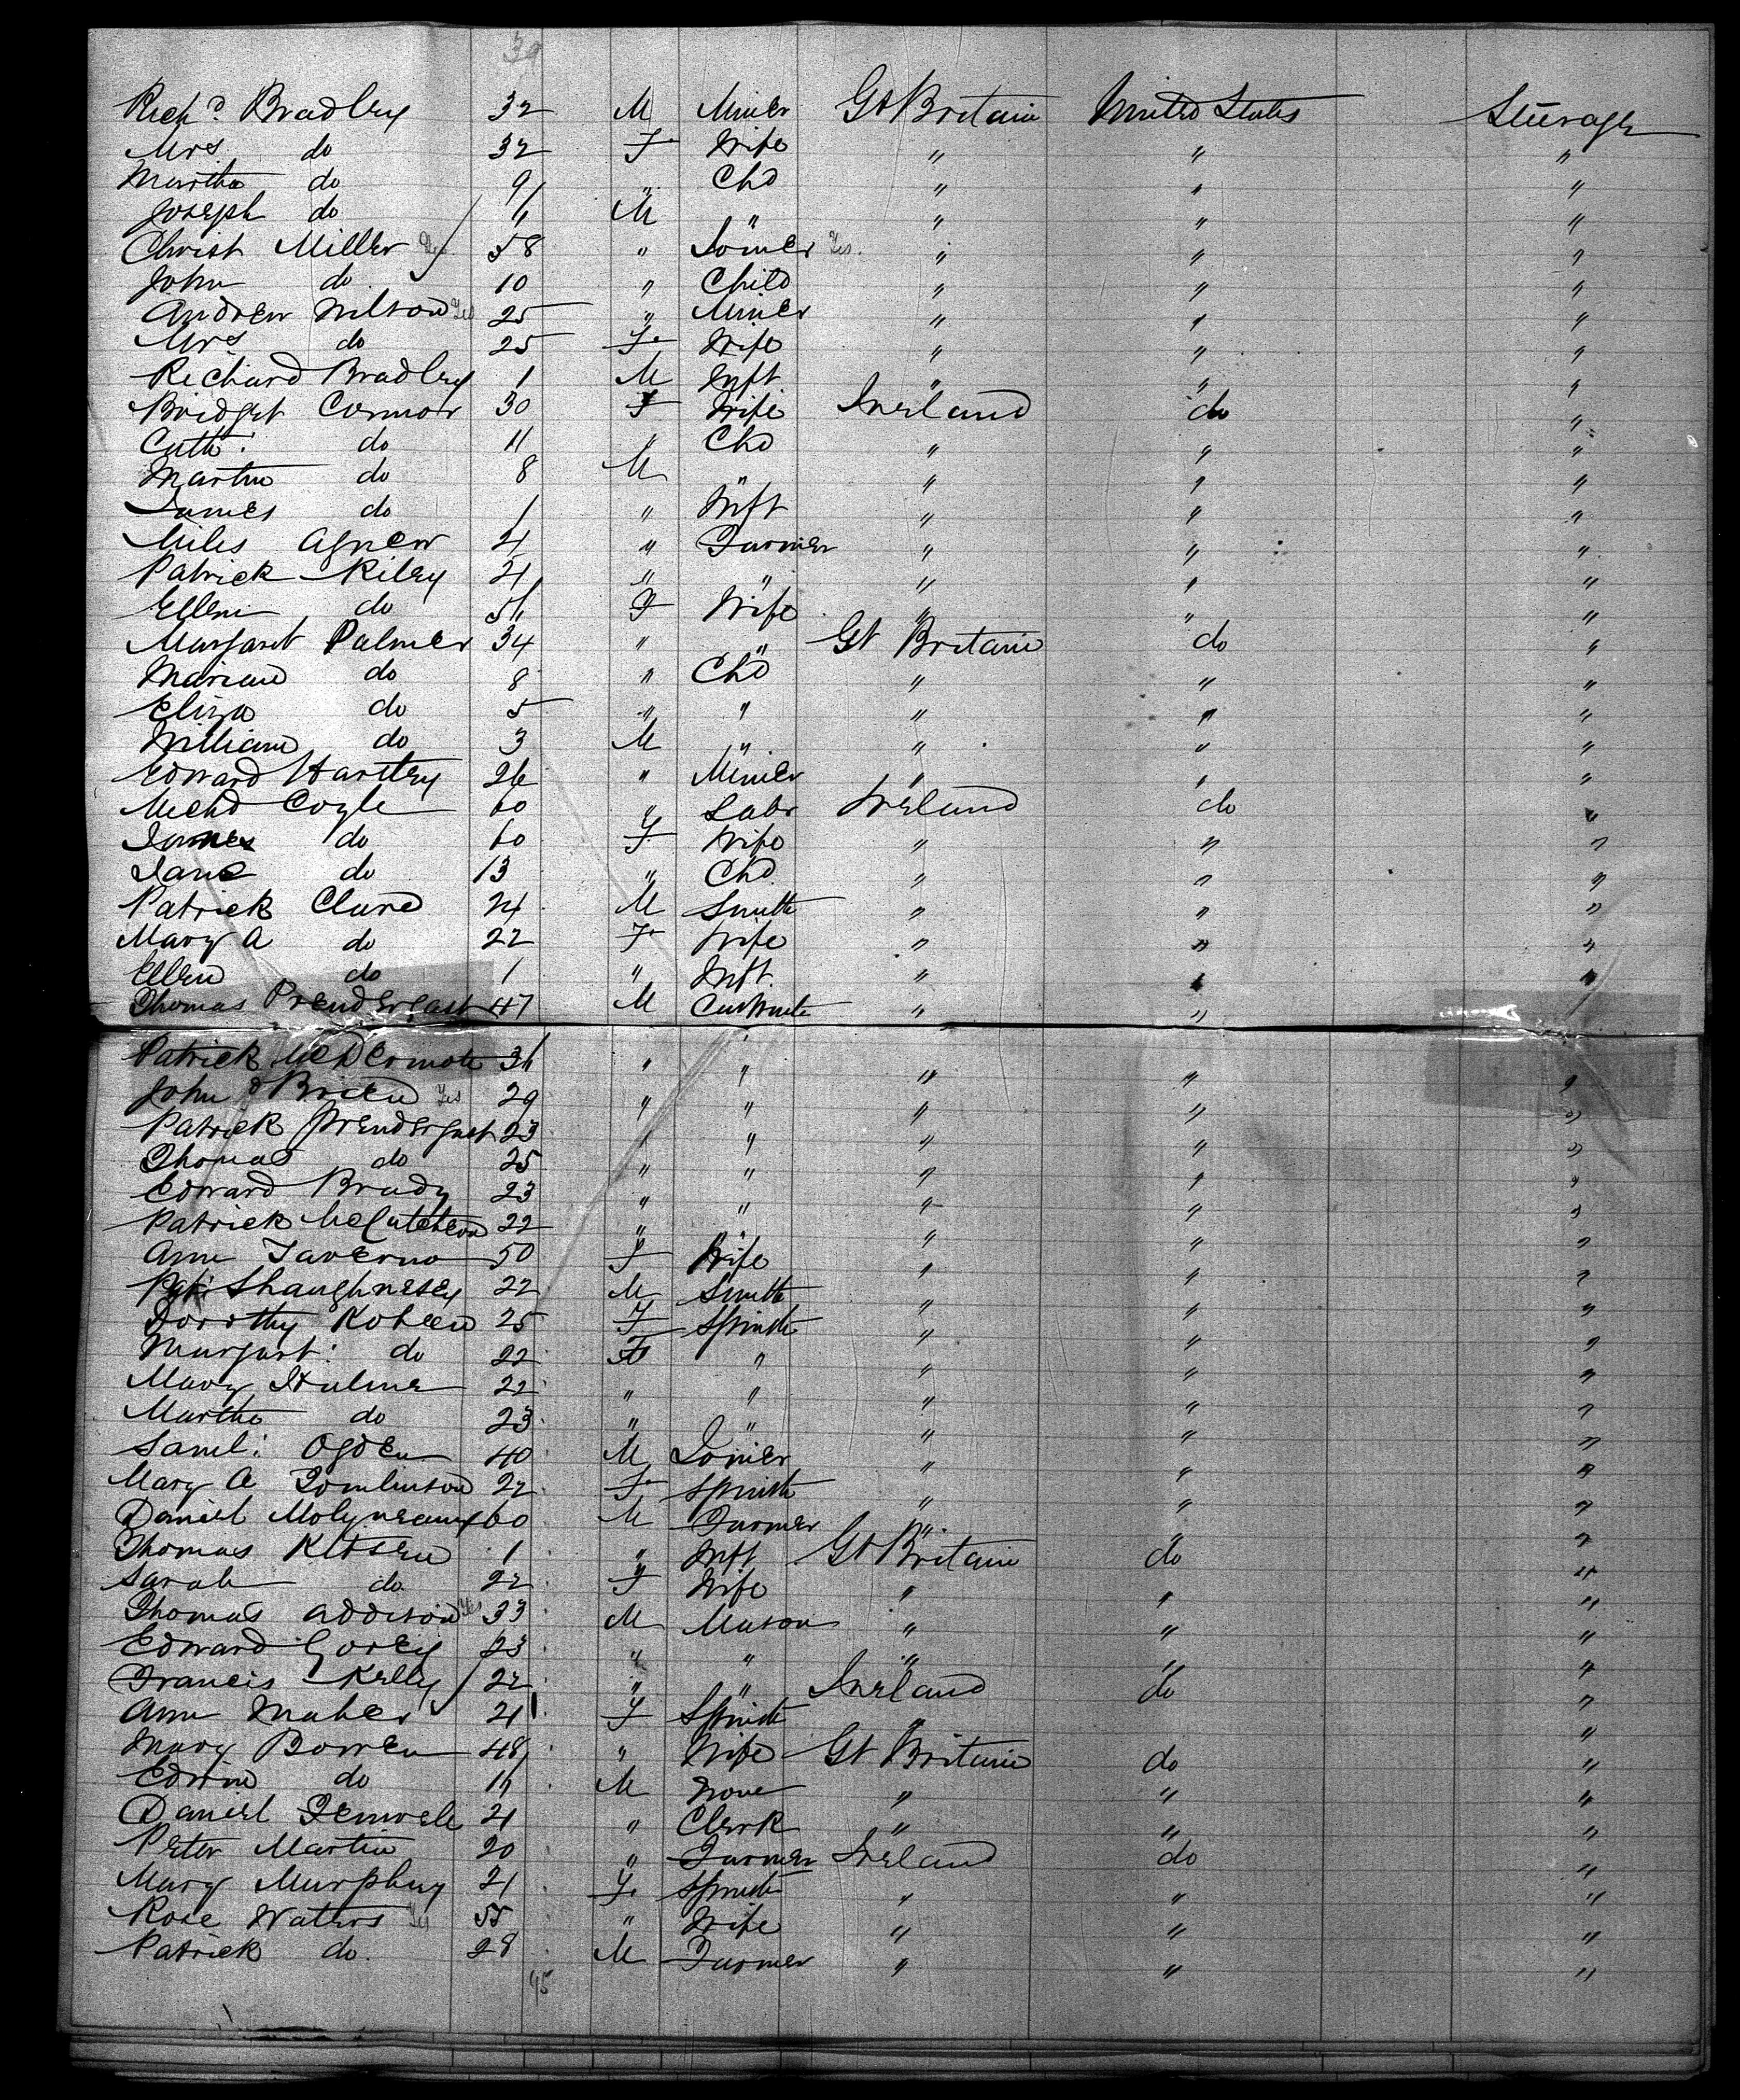 39
Rich.d Bradley 32 M Miner Gt Britain United States Steerage
Mrs do 32 F Wife " " "
Martha do 9 " Chd " " "
Joseph do 6 M " " " "
Christ Miller Yes 58 " Joiner Yes. " " "
John do 10 " Child " " "
Andrew Wilson Yes 25 " Miner " " "
Mrs do 25 F Wife " " "
Richard Bradley 1 M Inft " " "
Bridget Connor 30 F Wife Ireland do "
Cath: do 11 " Chd " " "
Martin do 8 M " " " "
James do 1 " Inft " " "
Miles Agnew 21 " Farmer " " "
Patrick Riley 21 " " " " "
Ellen do 56 F Wife " " "
Margaret Palmer 34 " " Gt Britain do "
Marian do 8 " Chd " " "
Eliza do 5 " " " " "
William do 3 M " " " "
Edward Hartley 26 " Miner " " "
Michd Coyle 60 " Labr Ireland do "
James do 60 F Wife " " "
Jane do 13 " Chd " " "
Patrick Clare 24 M Smith " " "
Mary A do 22 F Wife " " "
Ellen do 1 " Inft " " "
Thomas Prendergast 47 M " "
Patrick McDermott 36 " " " " "
John O'Brien Yes 29 " " " " "
Patrick Prendergast 23 " " " " "
Thomas do 25 " " " " "
Edward Brady 23 " " " " "
Patrick McCutcheon 22 " " " " "
Ann Taverno 50 F Wife " " "
Pat: Shaughnesey 22 M Smith " " "
Dorothy Koheen 25 F Spinstr " " "
Margart: do 22 F " " " "
Mary Hulme 22 " " " " "
Martha do 23 " " " " "
Saml: Ogden 40 M Joiner " " "
Mary A Tomlinson 22 F Spinstr " " "
Daniel Molyneaux 60 M Farmer " " "
Thomas Kitsen 1 " Inft Gt Britain do "
Sarah do 22 F Wife " " "
Thomas Addison Yes 33 M Mason " " "
Edward Gorey 23 " " " " "
Francis Kelly 22 " " Ireland do "
Ann Maher 21 F Spinstr " "
Mary Bowen 48 " Wife Gt Britain do "
Edwin do 16 M None " " "
Daniel 21 " Clerk " " "
Peter Martin 20 " Farmer Ireland do "
Mary Murphy 21 F Spinstr " " "
Rose Waters Yes 55 " Wife " " "
Patrick do. 28 M Farmer " " "
45